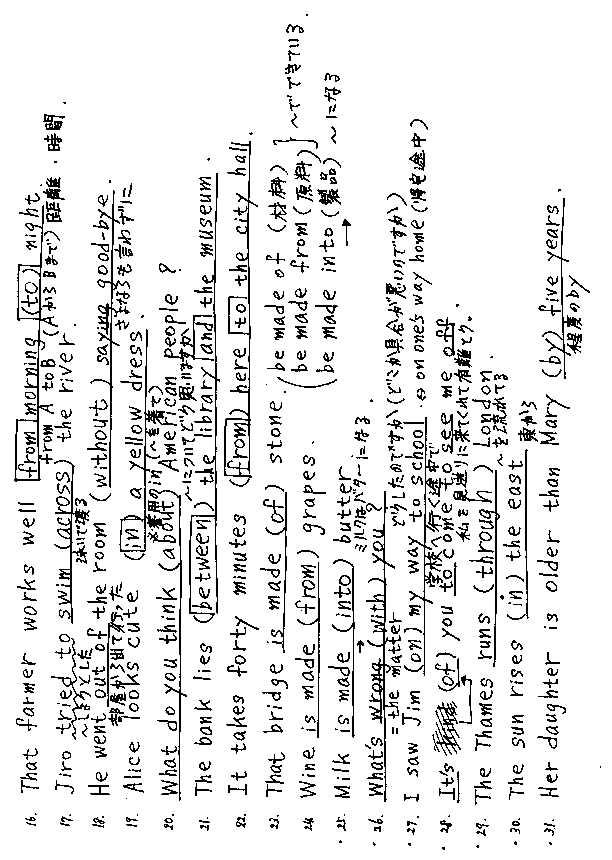 16. That farmer works well from morning (to) night.
from A to B (AからBまで) 距離・時間
17. Jiro tried to swim (across) the river.
～しようとした 泳いで渡る
18. He went out of the room (without) saying good-bye.
部屋から出て行った さよならも言わずに
19. Alice looks cute (in) a yellow dress.
着用のin (～を着て)
20. What do you think (about) American people?
～についてどう思いますか
21. The bank lies (between) the library and the museum.
22. It takes forty minutes (from) here to the city hall.
23. That bridge is made (of) stone. (be made of (材料)
24. Wine is made (from) grapes. (be made from (原料) } ～でできている
・25. Milk is made (into) butter (be made into (製品) ～になる
ミルクはバターになる
・26. What's wrong (with) you どうしたのですか (どこか具合が悪いのですか)
= the matter
・27. I saw Jim (on) my way to school. ⇔ on one's way home (帰宅途中)
学校へ行く途中で
・28. It's (of) you to come to see me off
私を見送りに来てくれて有難とう.
・29. The Thames runs (through) London.
～を流れてる
・30. The sun rises (in) the east 東から
・31. Her daughter is older than Mary (by) five years.
程度のby